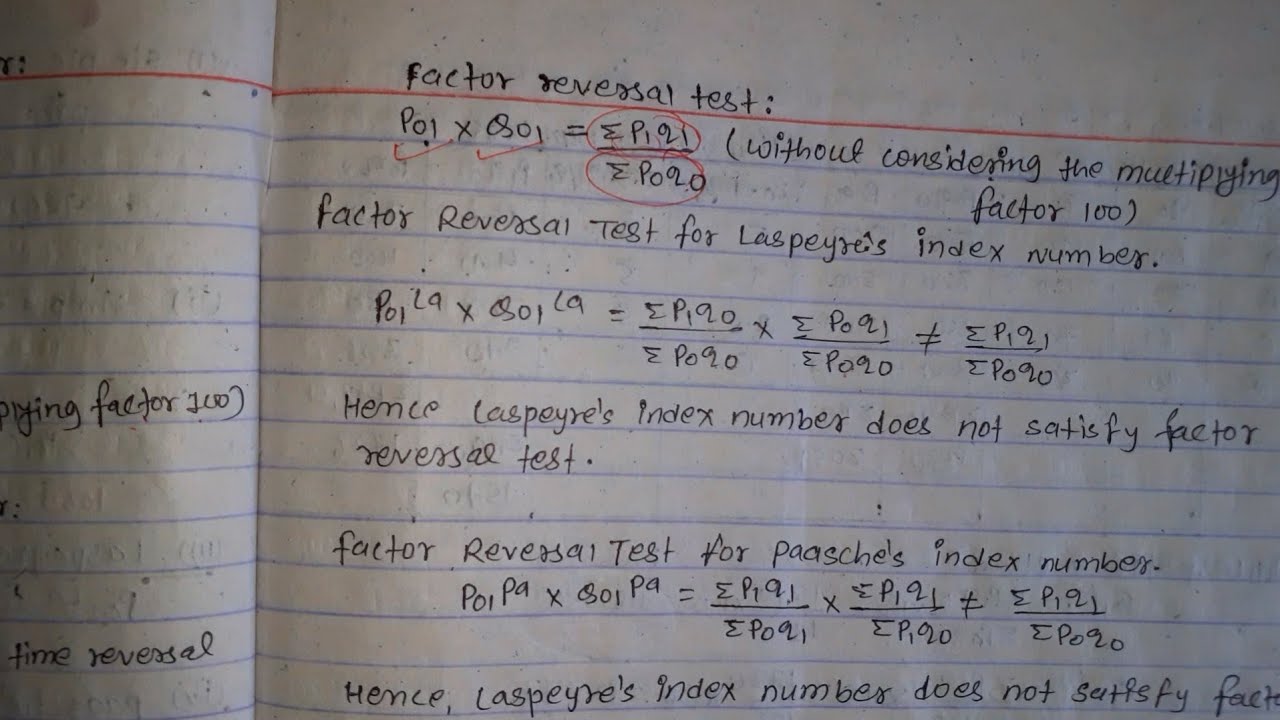 r:
plying factor 100)
r:
time reversal
Factor reversal test:
P01 × Q01 = ΣP1q1 / ΣP0q0 (without considering the multiplying
factor 100)
Factor Reversal Test for Laspeyre's index number.
P01^La × Q01^La = ΣP1q0 / ΣP0q0 × ΣP0q1 / ΣP0q0 ≠ ΣP1q1 / ΣP0q0
Hence Laspeyre's index number does not satisfy factor
reversal test.
Factor Reversal Test for Paasche's index number.
P01^Pa × Q01^Pa = ΣP1q1 / ΣP0q1 × ΣP1q1 / ΣP1q0 ≠ ΣP1q1 / ΣP0q0
Hence, Laspeyre's index number does not satisfy fact